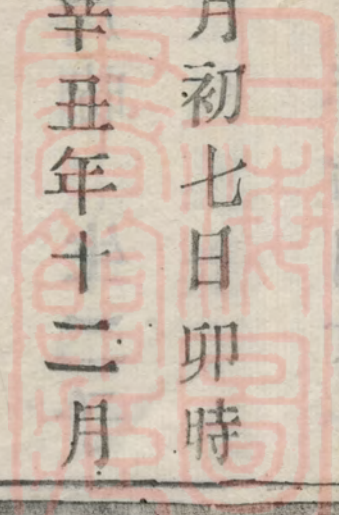 月初七日卯時
辛丑年十二月